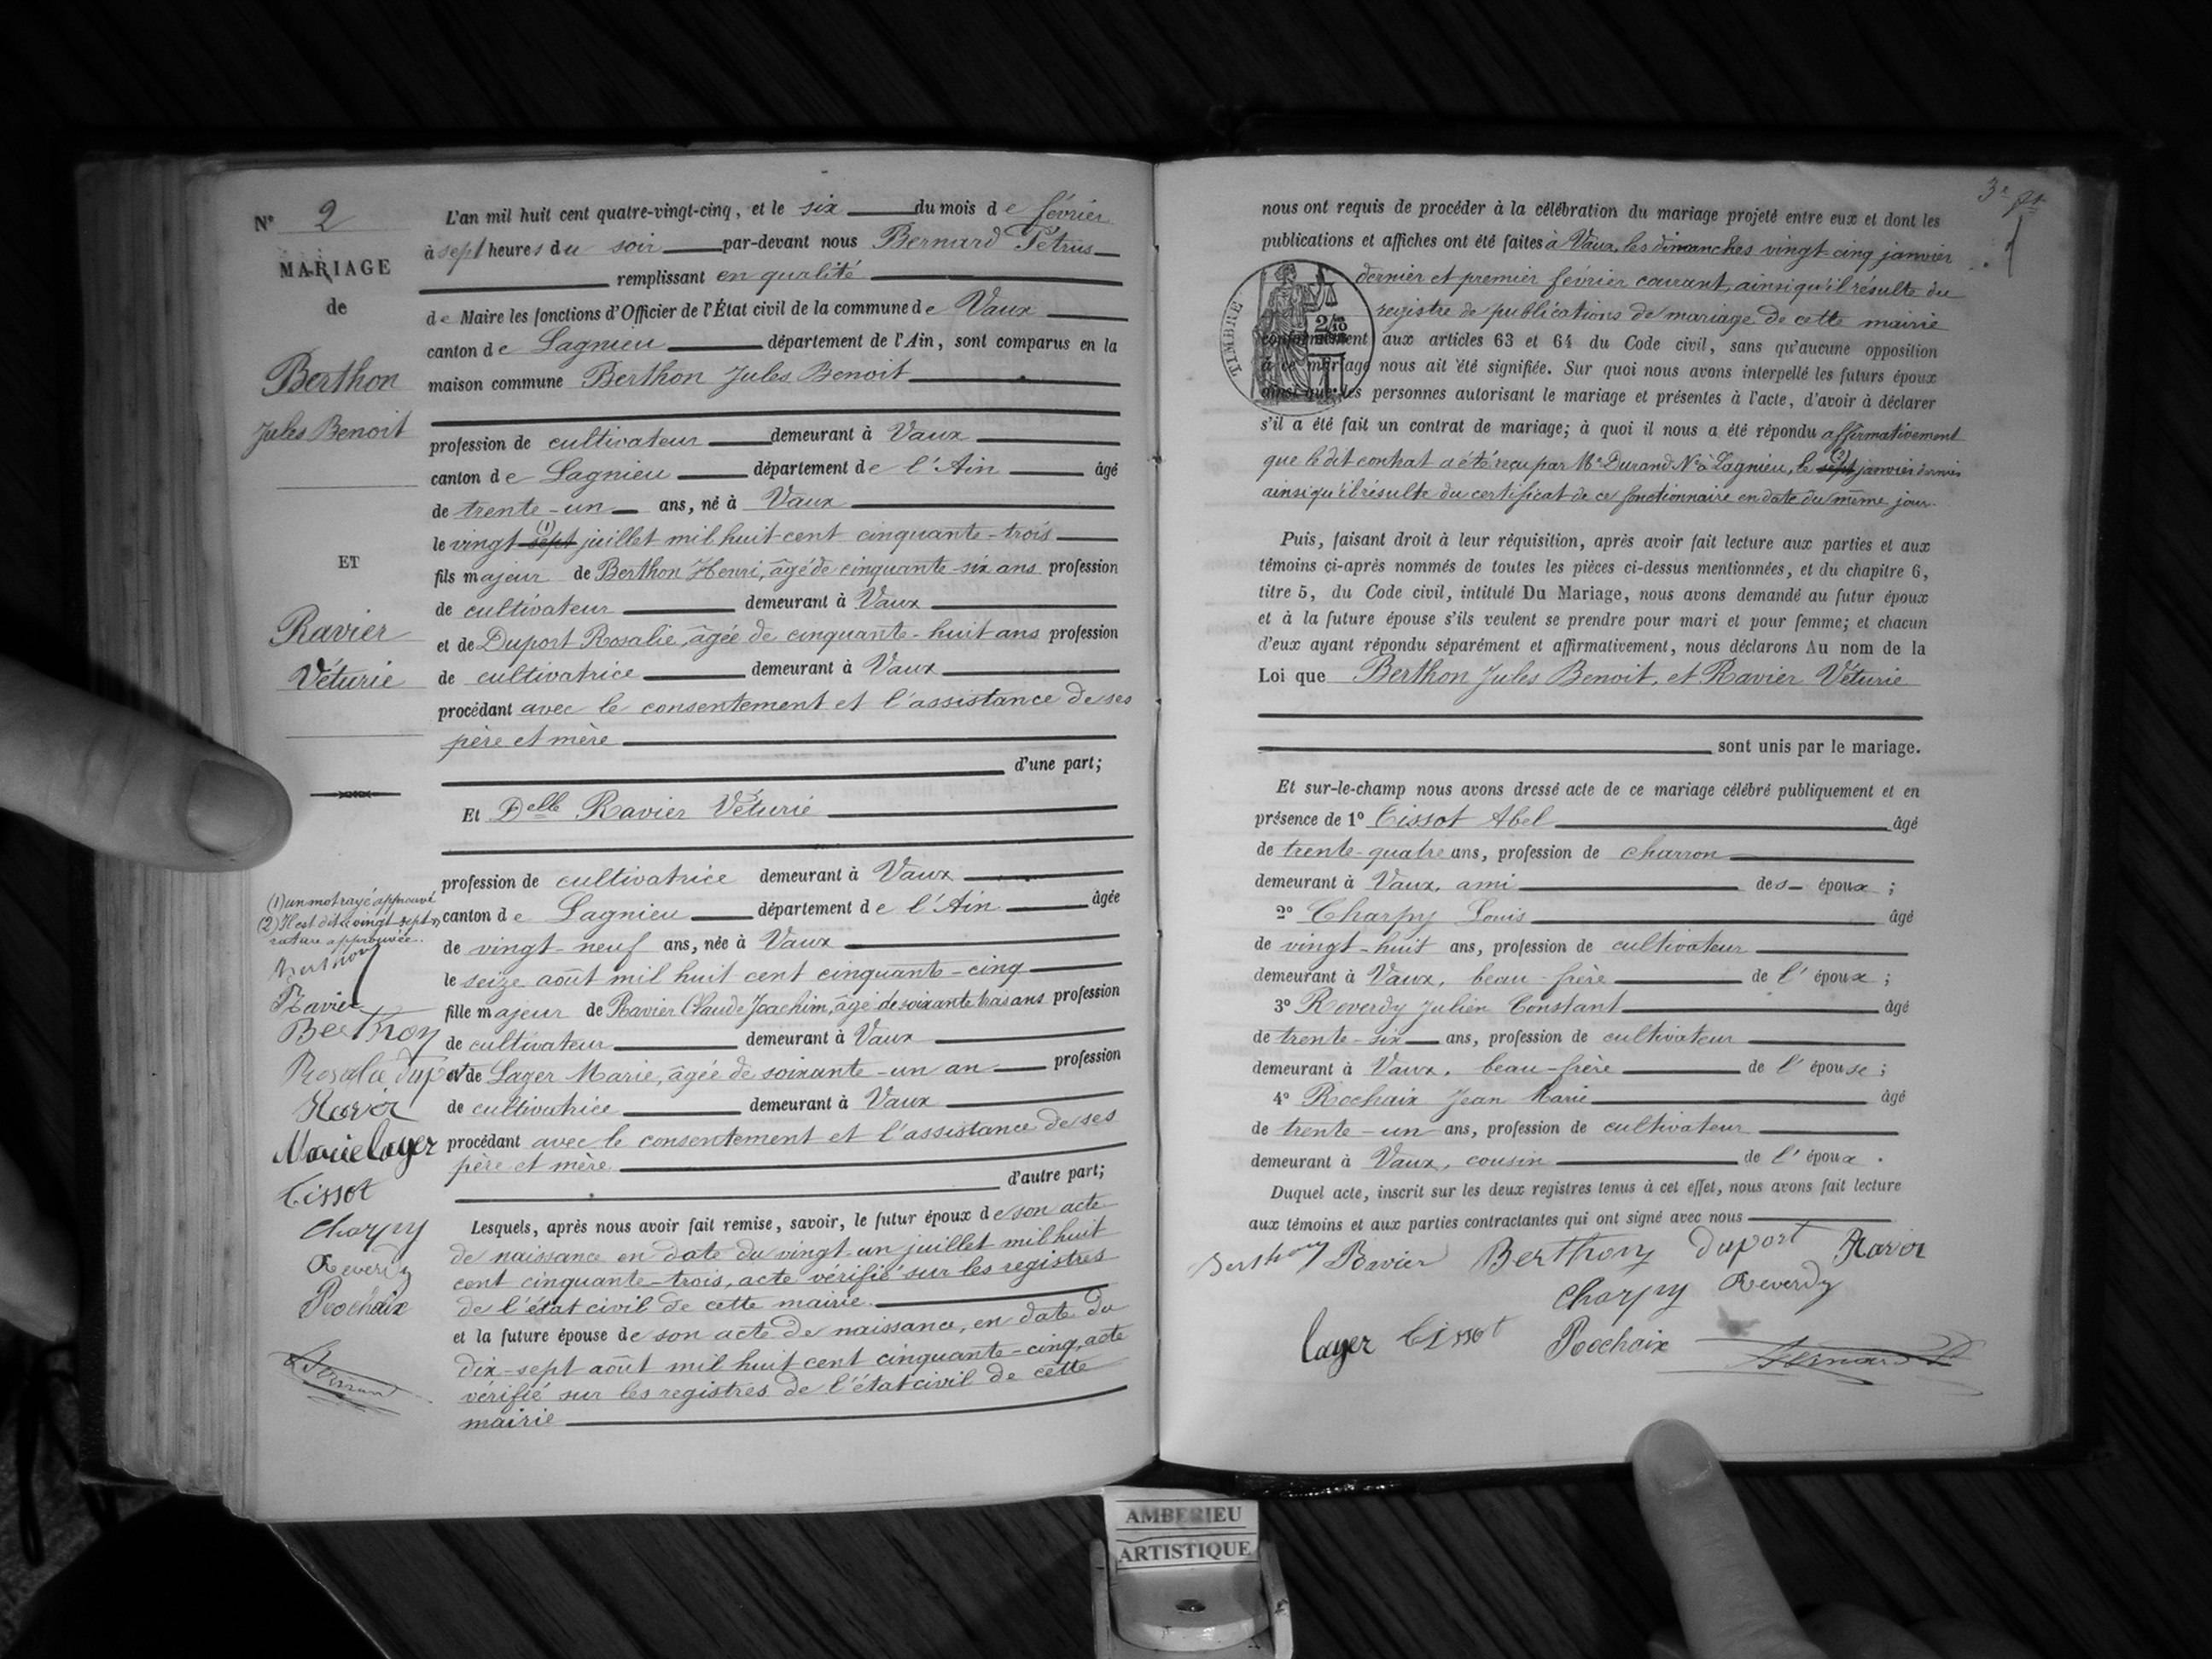 N° 2
MARIAGE
de
Berthon
Jules Benoit
ET
Ravier
Véturie
(1) un mot rayé approuvé
(2) Il est dit "vingt-sept",
rature approuvée.
Berthon
Ravier
Berthon
Rosalie dup
Ravier
Marie layer
Tissot
Charpy
Reverdy
Rochaix
Bernard
L'an mil huit cent quatre-vingt-cinq, et le six du mois de février
à sept heures du soir par-devant nous Bernard Pétrus
remplissant en qualité
de Maire les fonctions d'Officier de l'État civil de la commune de Vaux
canton de Lagnieu département de l'Ain, sont comparus en la
maison commune Berthon Jules Benoit
profession de cultivateur demeurant à Vaux
canton de Lagnieu département de l'Ain âgé
de trente-un ans, né à Vaux
le vingt sept (1) juillet mil huit-cent cinquante-trois
fils majeur de Berthon Henri, âgé de cinquante-six ans profession
de cultivateur demeurant à Vaux
et de Duport Rosalie, âgée de cinquante-huit ans profession
de cultivatrice demeurant à Vaux
procédant avec le consentement et l'assistance de ses
père et mère
d'une part;
Et Delle Ravier Véturie
profession de cultivatrice demeurant à Vaux
canton de Lagnieu département de l'Ain âgée
de vingt-neuf ans, née à Vaux
le seize août mil huit cent cinquante-cinq
fille majeur de Ravier Claude Joachim, âgé de soixante trois ans profession
de cultivateur demeurant à Vaux
et de Layer Marie, âgée de soixante-un an profession
de cultivatrice demeurant à Vaux
procédant avec le consentement et l'assistance de ses
père et mère
d'autre part;
Lesquels, après nous avoir fait remise, savoir, le futur époux de son acte
de naissance en date du vingt-un juillet mil huit
cent cinquante-trois, acte vérifié sur les registres
de l'état civil de cette mairie.
et la future épouse de son acte de naissance, en date du
dix-sept août mil huit cent cinquante-cinq, acte
vérifié sur les registres de l'état civil de cette
mairie
nous ont requis de procéder à la célébration du mariage projeté entre eux et dont les
publications et affiches ont été faites à Vaux, les dimanches vingt-cinq janvier
dernier et premier février courant, ainsi qu'il résulte du
registre de publications de mariage de cette mairie
TIMBRE
conformément aux articles 63 et 64 du Code civil, sans qu'aucune opposition
à ce mariage nous ait été signifiée. Sur quoi nous avons interpellé les futurs époux
ainsi que les personnes autorisant le mariage et présentes à l'acte, d'avoir à déclarer
s'il a été fait un contrat de mariage; à quoi il nous a été répondu affirmativement
que le dit contrat a été reçu par Me Durand Nre à Lagnieu, le sept (2) janvier dernier
ainsi qu'il résulte du certificat de ce fonctionnaire en date du même jour.
Puis, faisant droit à leur réquisition, après avoir fait lecture aux parties et aux
témoins ci-après nommés de toutes les pièces ci-dessus mentionnées, et du chapitre 6,
titre 5, du Code civil, intitulé Du Mariage, nous avons demandé au futur époux
et à la future épouse s'ils veulent se prendre pour mari et pour femme; et chacun
d'eux ayant répondu séparément et affirmativement, nous déclarons Au nom de la
Loi que Berthon Jules Benoit, et Ravier Véturie
sont unis par le mariage.
Et sur-le-champ nous avons dressé acte de ce mariage célébré publiquement et en
présence de 1° Tissot Abel âgé
de trente-quatre ans, profession de charron
demeurant à Vaux, ami des époux ;
2° Charpy Louis âgé
de vingt-huit ans, profession de cultivateur
demeurant à Vaux, beau-frère de l'époux ;
3° Reverdy Julien Constant âgé
de trente-six ans, profession de cultivateur
demeurant à Vaux, beau-frère de l'épouse ;
4° Rochaix Jean Marie âgé
de trente-un ans, profession de cultivateur
demeurant à Vaux, cousin de l'époux .
Duquel acte, inscrit sur les deux registres tenus à cet effet, nous avons fait lecture
aux témoins et aux parties contractantes qui ont signé avec nous
Berthon Ravier Berthon Duport Ravier
Charpy Reverdy
layer Tissot Rochaix Bernard P
AMBERIEU
ARTISTIQUE